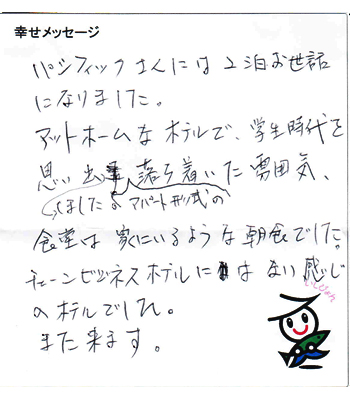 幸せメッセージ
パシフィックさんには2泊お世話
になりました。
アットホームなホテルで、学生時代を
思い出
落ち着いた雰囲気、
しました。アパート形式の
食堂は家にいるような朝食でした。
チェーンビジネスホテルにはない感じ
のホテルでした。
また来ます。